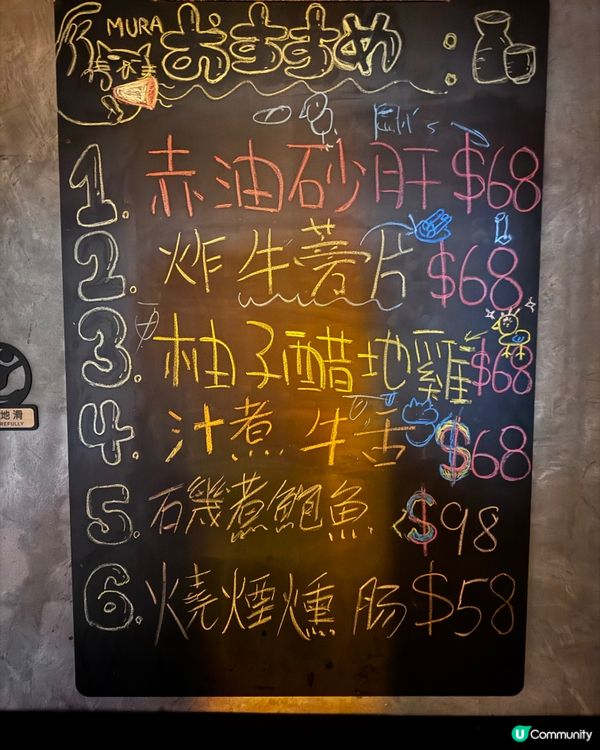 MURA おすすめ
1. 赤油砂肝 $68
2. 炸牛蒡片 $68
3. 柚子醋地雞 $68
4. 汁煮牛舌 $68
5. 石磯煮鮑魚 $98
6. 燒煙燻肠 $58
地滑
REFULLY
U Community